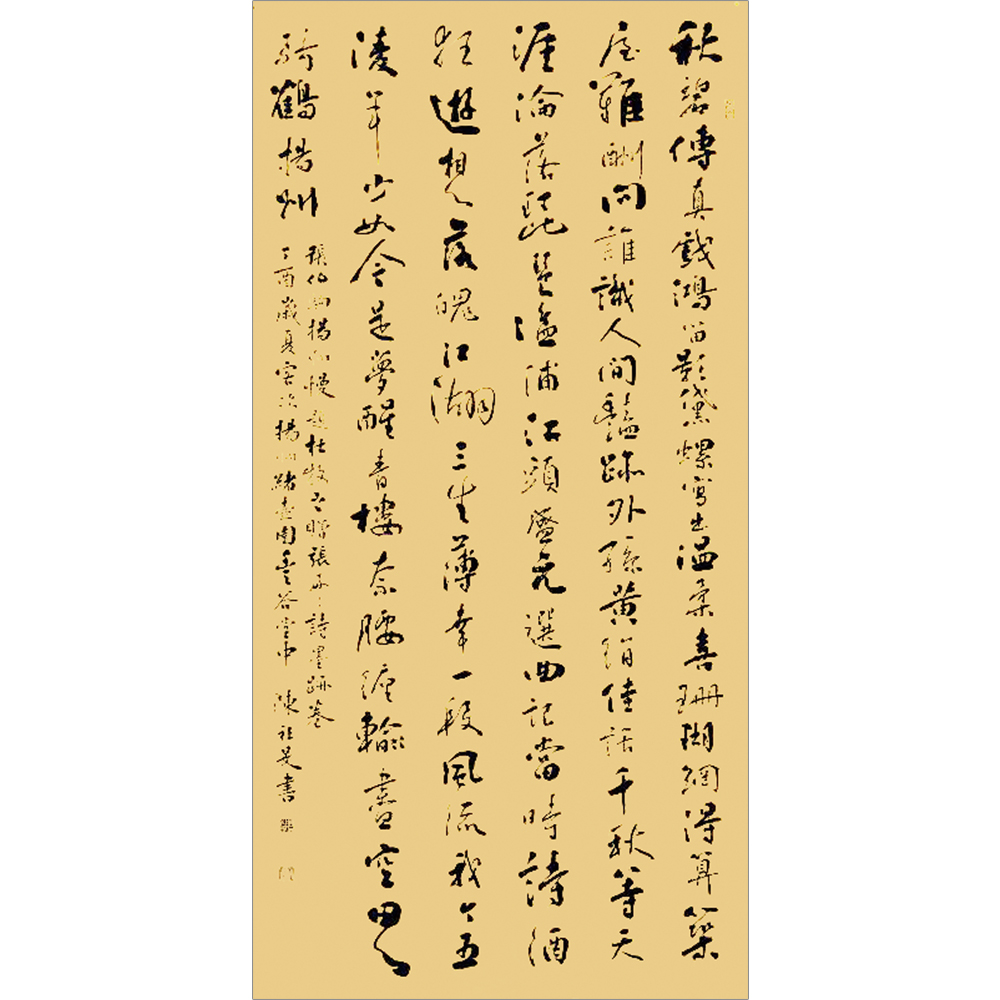 秋碧傳真戲鴻留影黛螺寫出溫柔喜珊瑚網得算築
屋難酬問誰識人間豔跡外孫黃絹佳話千秋等天
涯淪落琵琶湓浦江頭盛元選曲記當時詩酒
狂遊想落魄江湖三生薄幸一段風流我亦五
陵年少如今是夢醒青樓奈腰纏輸盡空思
騎鶴揚州
張伯駒揚州慢題杜牧之贈張好好詩墨跡卷
丁酉歲夏客次揚州 園 谷堂中 陳社 書